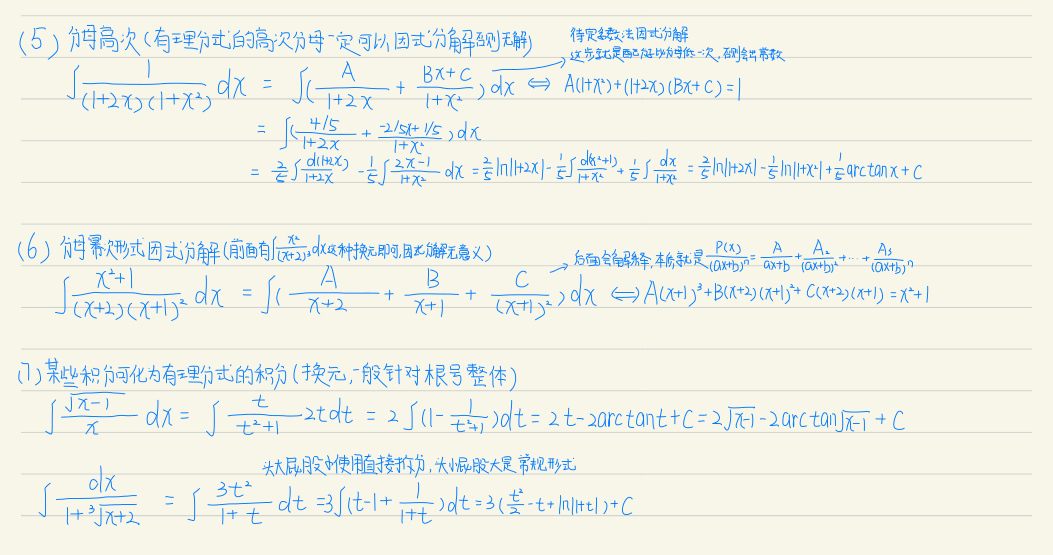 (5) 分母高次(有理分式的高次分母一定可以因式分解否则无解)
待定系数法因式分解
这步就是分子比分母低一次,否则会出常数
∫ 1/((1+2x)(1+x²)) dx = ∫( A/(1+2x) + (Bx+C)/(1+x²) ) dx ⟺ A(1+x²)+(1+2x)(Bx+C)=1
= ∫( (4/5)/(1+2x) + (-2/5x+1/5)/(1+x²) ) dx
= 2/5 ∫ d(1+2x)/(1+2x) - 1/5 ∫ (2x-1)/(1+x²) dx = 2/5 ln|1+2x| - 1/5 ∫ d(x²+1)/(1+x²) + 1/5 ∫ dx/(1+x²) = 2/5 ln|1+2x| - 1/5 ln|1+x²| + 1/5 arctanx + C
(6) 分母幂次形式因式分解(前面有∫ x²/(x+2)³ dx这种换元即可,因式分解无意义)
后面会解释,本质就是 P(x)/(ax+b)ⁿ = A/(ax+b) + A₂/(ax+b)² + ··· + A₅/(ax+b)ⁿ
∫ (x²+1)/((x+2)(x+1)²) dx = ∫( A/(x+2) + B/(x+1) + C/(x+1)² ) dx ⟺ A(x+1)³+B(x+2)(x+1)²+C(x+2)(x+1)=x²+1
(7) 某些积分可化为有理分式的积分(换元,一般针对根号整体)
∫ √(x-1)/x dx = ∫ t/(t²+1) 2tdt = 2∫(1- 1/(t²+1))dt = 2t-2arctant+C = 2√(x-1) -2arctan√(x-1) + C
头大屁股小使用直接拆分,头小屁股大是常规形式
∫ dx/(1+³√(x+2)) = ∫ 3t²/(1+t) dt =3∫(t-1+ 1/(1+t))dt =3(t²/2 -t+ln|1+t|)+C